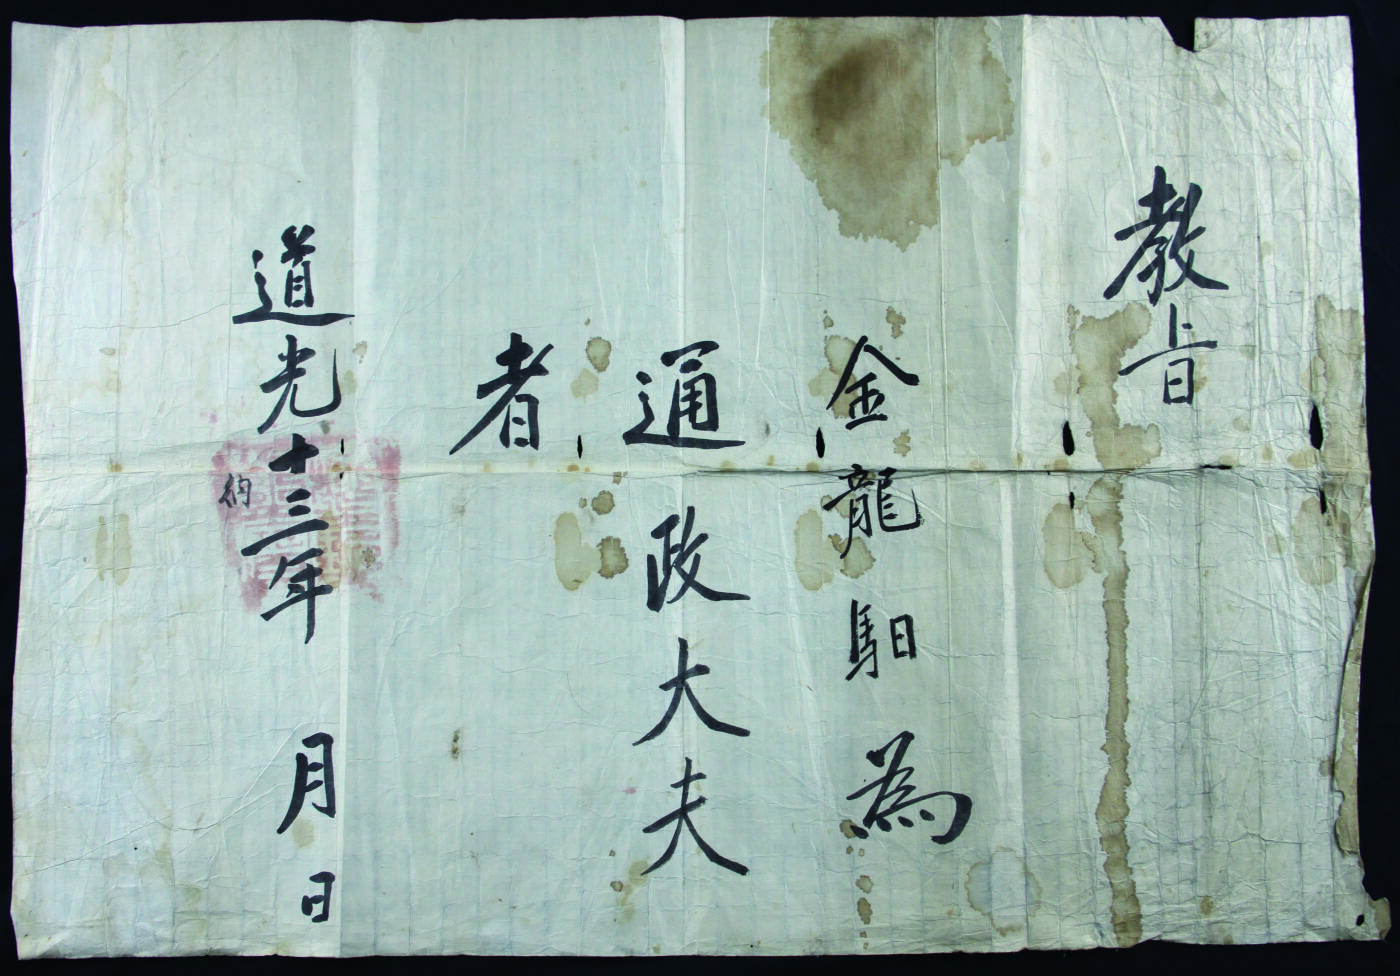 教旨
金龍馹為
通政大夫
者
道光十三年 月 日